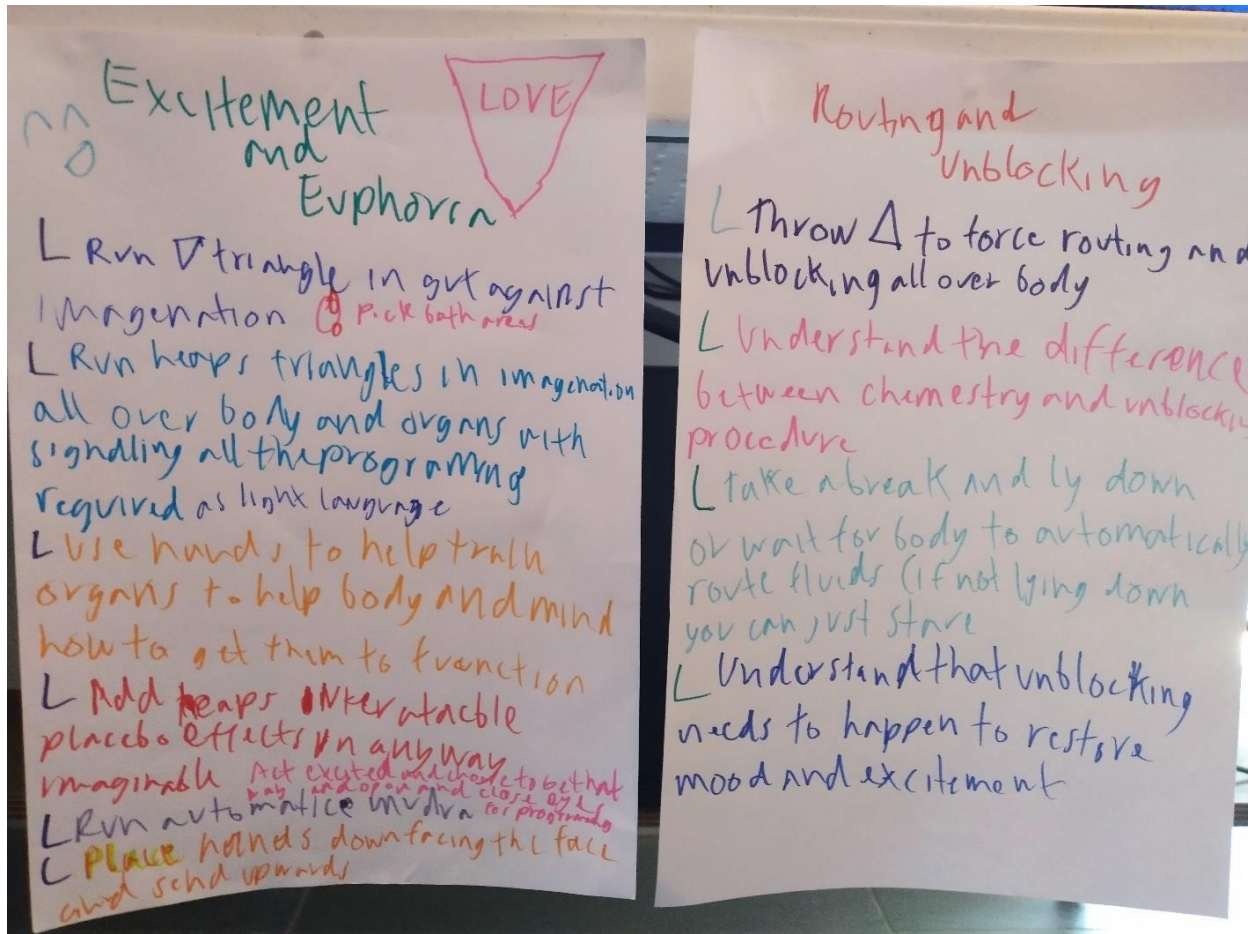 Excitement
and
Euphoria
LOVE
L Run ∇ triangle in gut against
imagenation Pick both areas
L Run heaps triangles in imagenation
all over body and organs with
signalling all the programing
required as light language
L use hands to help train
organs to help body and mind
how to get them to function
L Add heaps
placebo effects in any way
imaginable Act excited and chose to be that
way and open and close eyes
L Run automatice mudra for programing
L Place hands down facing the face
and send upwards
Routing and
Unblocking
L Throw Δ to force routing and
unblocking all over body
L Understand the difference
between chemestry and unblocking
procedure
L take a break and ly down
or wait for body to automatically
route fluids (if not lying down
you can just stare
L Understand that unblocking
needs to happen to restore
mood and excitement